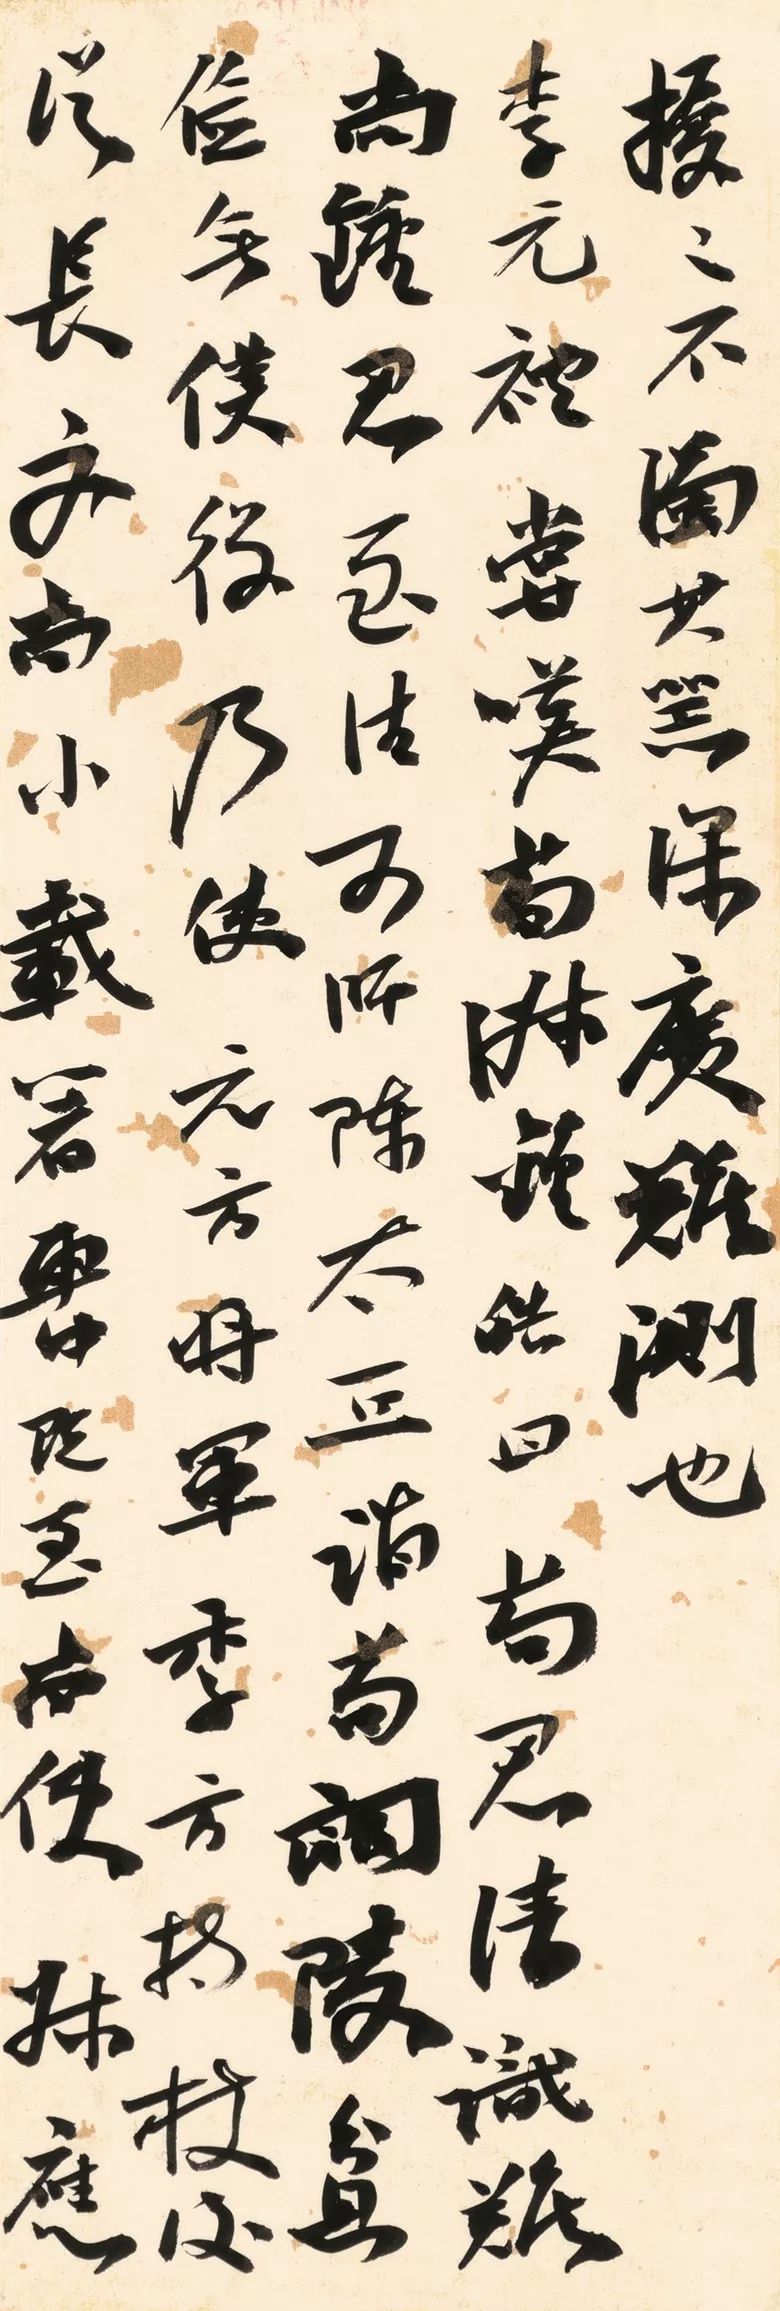 擾之不濁其器深廣難測也
李元禮嘗嘆荀淑鍾皓曰荀君清識難
尚鍾君至德可師陳太丘詣荀朗陵貧
儉無僕役乃使元方將軍季方持杖後
從長文尚小載箸車中既至荀使叔應